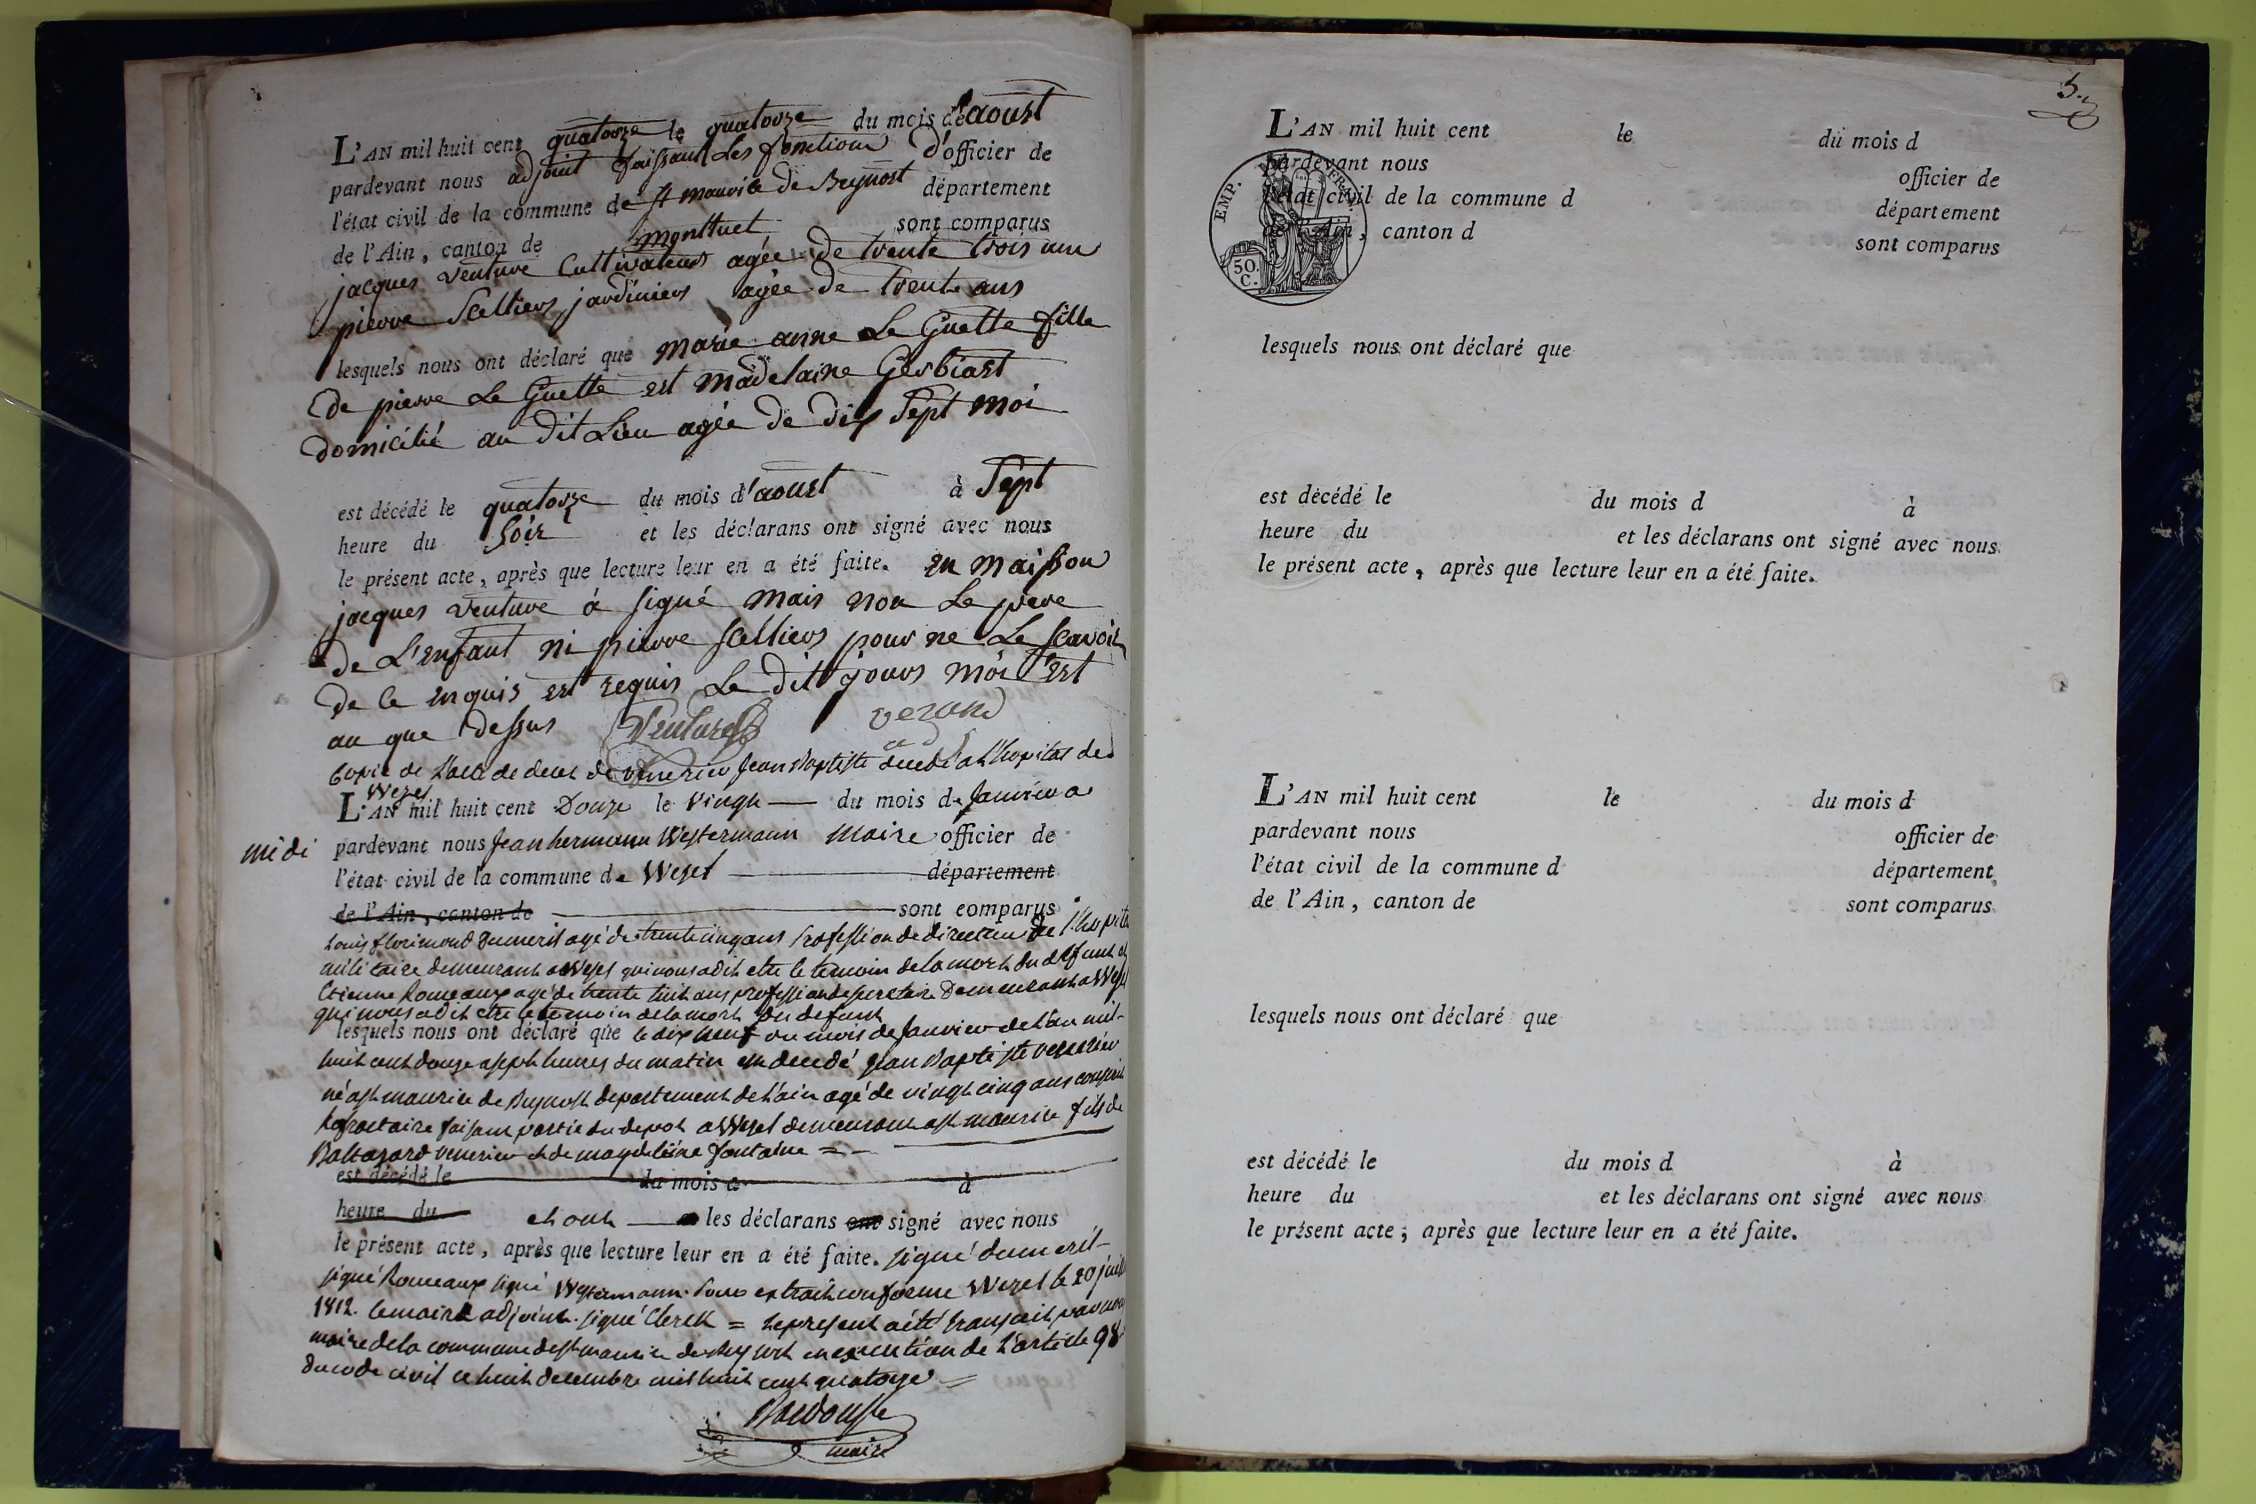 L'AN mil huit cent quatorze le quatorze du mois de aoust
pardevant nous adjoint faisant Les fonction d'officier de
l'état civil de la commune de st maurice de Beynost département
de l'Ain, canton de montluel sont comparus
jacques venture Cultivateurs agée de trente trois ans
pierre Scelliers jardiniers agée de trente ans
lesquels nous ont déclaré que marie anne Le Guette fille
De pierre Le Guette est madelaine Gerbiast
Domicilié au dit Lieu agée De dix Sept moi
est décédé le quatorze du mois d'aoust à Sept
heure du Soir et les déclarans ont signé avec nous
le présent acte, après que lecture leur en a été faite. en maison
jacques venture à signé mais non Le père
De L'enfant ni pierre scelliers pour ne Le scavoir
De ce enquis est requis Le dit jours moi est
an que dessus Venture verand
Copie de l'acte de deces de venerier Jean Baptiste decedé a L'hopital de
Wezel
L'AN mil huit cent Douze le vingt du mois de Janvier a
midi pardevant nous Jean hermann Westermann Maire officier de
l'état civil de la commune de Wezel département
de l'Ain, canton de sont comparus
Louis florimond Dumeril agé de trente cinq ans Profession de directeur de l'hopital
militaire demeurant a Wezel qui nous a dit etre le temoin de la mort du defunt et
Etienne Romeaux agé de trente huit ans profession de secretaire Demeurant a Wezel
qui nous a dit etre le temoin de la mort du defunt
lesquels nous ont déclaré que le dix neuf du mois de Janvier de l'an mil
huit cent douze a sept heures du matin est decedé Jean Baptiste venerier
né a st maurice de Beynost departement de l'ain agé de vingt cinq ans conscrit
Refractaire faisant partie du depot a Wezel demeurant a st maurice fils de
Baltazard venerier et de magdeleine fontaine =
est décédé le du mois d à
heure du et ont les déclarans ont signé avec nous
le présent acte, après que lecture leur en a été faite. signé dumeril
signé Romeaux signé Westermann. Pour extrait conforme Wezel le 20 juillet
1812. le maire adjoint. signé Clerck = le present a été transcrit par nous
maire de la commune de st maurice de Beynost en execution de l'article 98
du code civil ce huit decembre mil huit cent quatorze =
maire
5.
L'AN mil huit cent le du mois d
pardevant nous officier de
l'état civil de la commune d département
de l'Ain, canton d sont comparus
EMP. FRAN.
50.
C.
lesquels nous ont déclaré que
est décédé le du mois d à
heure du et les déclarans ont signé avec nous
le présent acte, après que lecture leur en a été faite.
L'AN mil huit cent le du mois d
pardevant nous officier de
l'état civil de la commune d département
de l'Ain, canton de sont comparus
lesquels nous ont déclaré que
est décédé le du mois d à
heure du et les déclarans ont signé avec nous
le présent acte, après que lecture leur en a été faite.